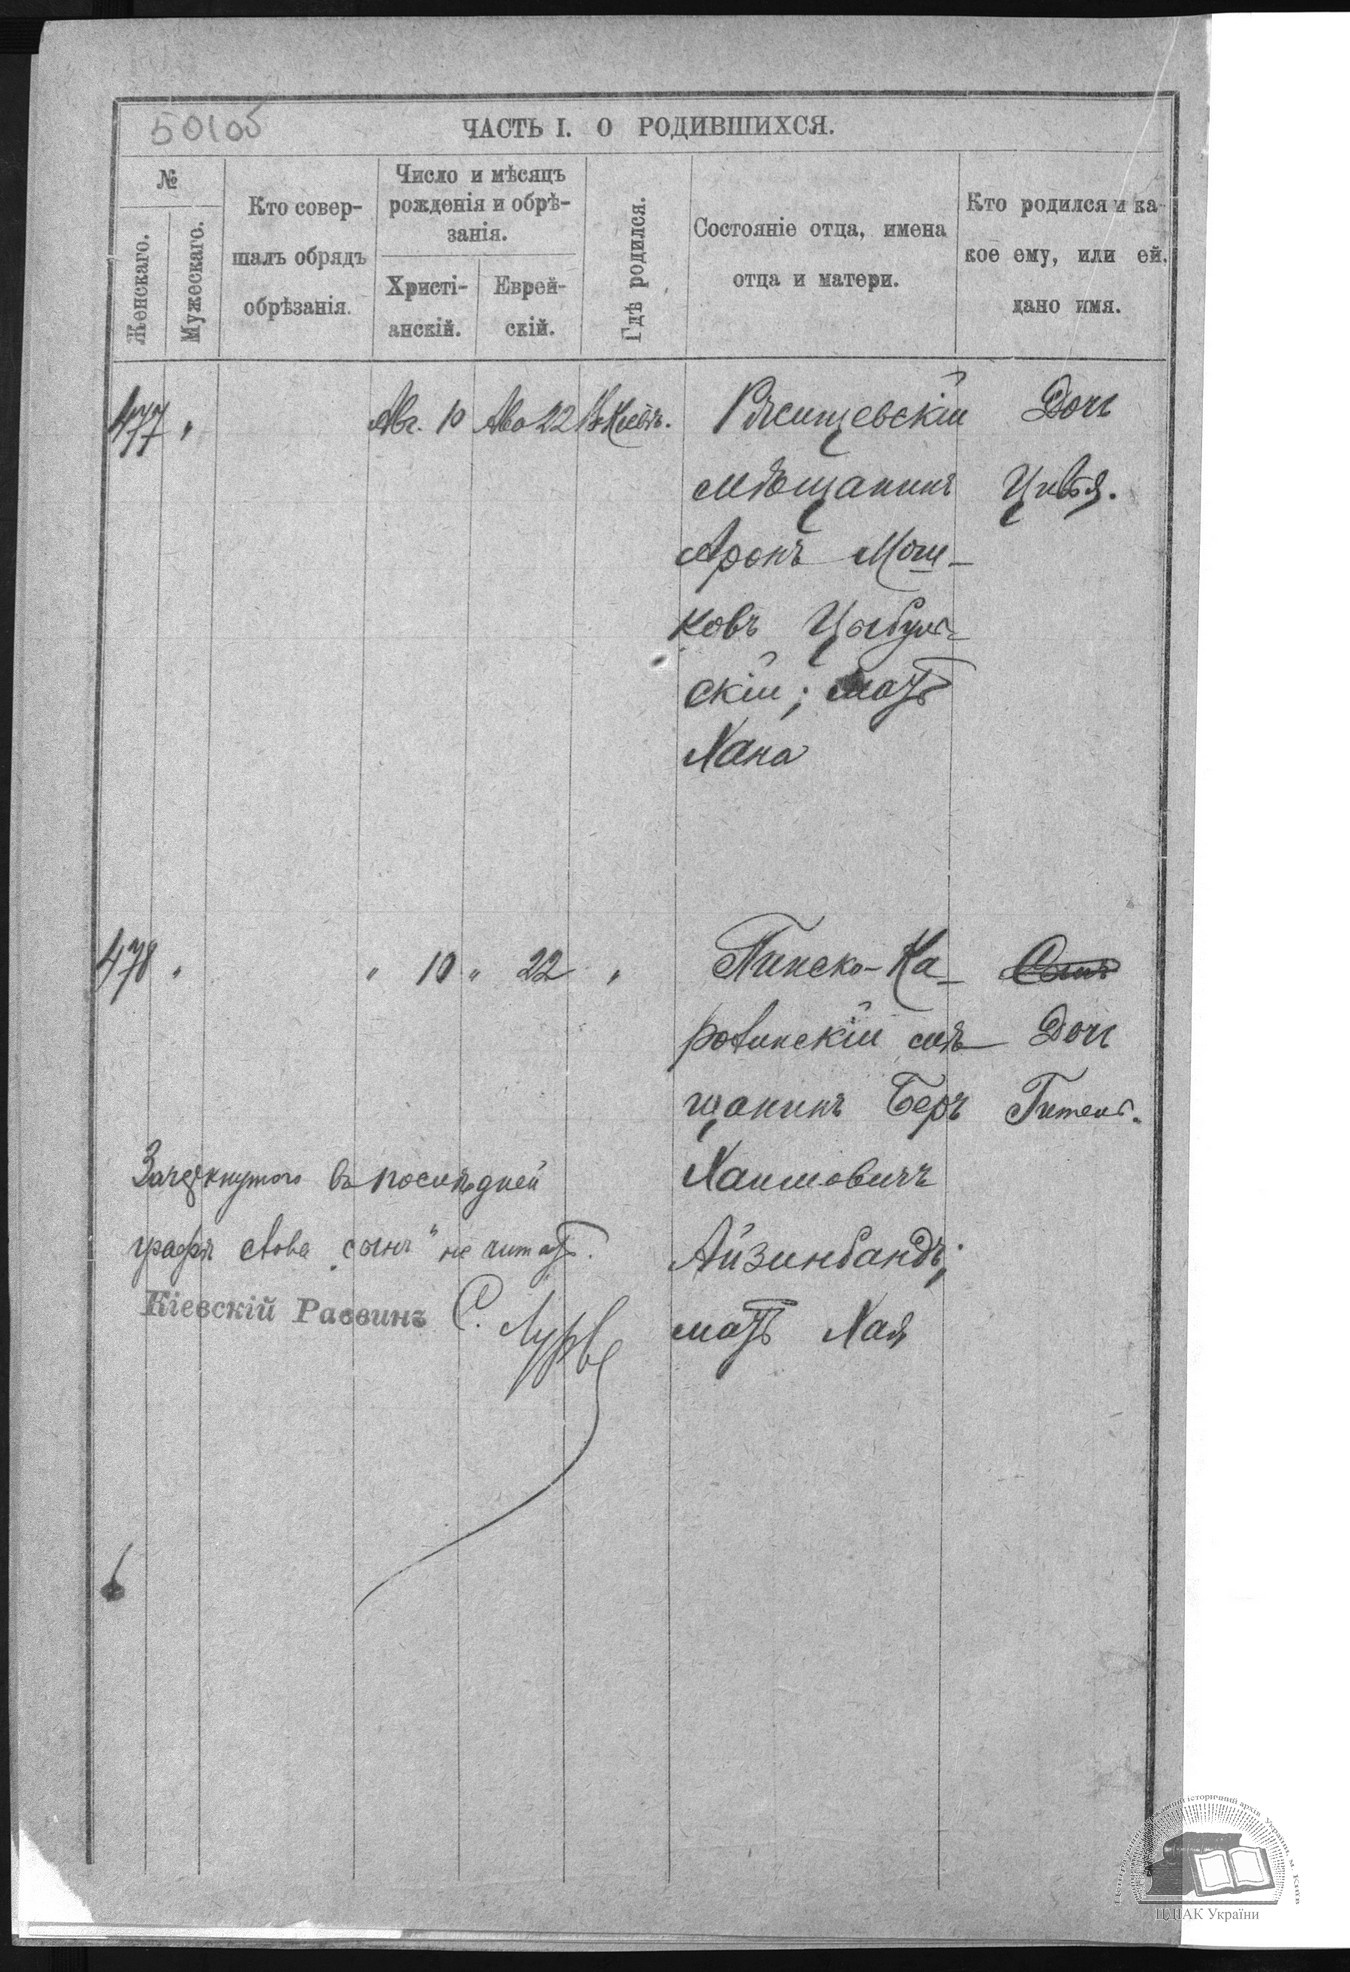 50105
ЧАСТЬ I. О РОДИВШИХСЯ.
№
Женскаго.
Мужескаго.
Кто совер-
шалъ обрядъ
обрѣзанія.
Число и мѣсяцъ
рожденія и обрѣ-
занія.
Христі-
анскій.
Еврей-
скій.
Гдѣ родился.
Состояніе отца, имена
отца и матери.
Кто родился и ка-
кое ему, или ей,
дано имя.
477 " Авг. 10 Аво 22 Въ Кіевѣ.
Ржищевскій
мѣщанинъ
Аронъ Мош-
ковъ Цыбуль-
скій; мать
Хана
Дочь
Цивья.
478 " " 10 " 22 "
Пинско-Ка-
ровинскій мѣ-
щанинъ Беръ
Хаимовичъ
Айзинбандъ;
мать Хая
Сынъ
Дочь
Гитель.
Зачеркнутого въ послѣдней
графѣ слова "сынъ" не читать.
Кіевскій Раввинъ С. Лурье
ЦДІАК України